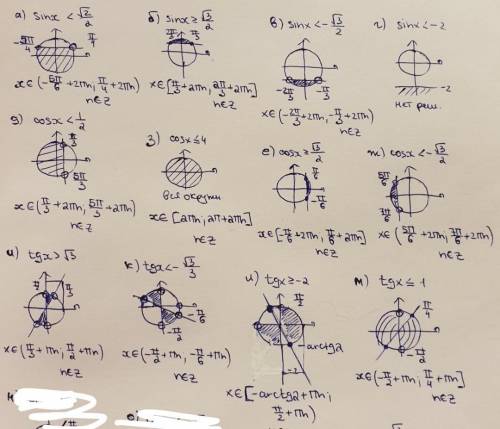 а) sinx < √2/2
-5π/4 π/4
x∈(-5π/4+2πn; π/4+2πn)
n∈Z
б) sinx ≥ √3/2
2π/3 π/3
x∈[π/3+2πn; 2π/3+2πn]
n∈Z
в) sinx < -√3/2
-2π/3 -π/3
x∈(-2π/3+2πn; -π/3+2πn)
n∈Z
г) sinx < -2
-2
нет реш.
д) cosx < 1/2
π/3
5π/3
x∈(π/3+2πn; 5π/3+2πn)
n∈Z
з) cosx ≤ 4
x∈[2πn; 2π+2πn]
n∈Z
е) cosx ≥ √3/2
π/6
-π/6
x∈[-π/6+2πn; π/6+2πn]
n∈Z
ж) cosx < -√3/2
5π/6
7π/6
x∈(5π/6+2πn; 7π/6+2πn)
n∈Z
и) tgx > √3
π/2 π/3
x∈(π/3+πn; π/2+πn)
n∈Z
к) tgx < -√3/3
-π/6
-π/2
x∈(-π/2+πn; -π/6+πn)
n∈Z
и) tgx ≥ -2
-arctg2
-2
x∈[-arctg2+πn;
π/2+πn)
м) tgx ≤ 1
π/4
-π/2
x∈(-π/2+πn; π/4+πn]
n∈Z